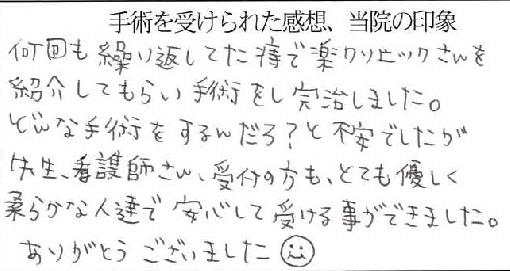 手術を受けられた感想、当院の印象
何回も繰り返してた痔で楽クリニックさんを
紹介してもらい手術をし完治しました。
どんな手術をするんだろ？と不安でしたが
先生、看護師さん、受付の方も、とても優しく
柔らかな人達で安心して受ける事ができました。
ありがとうございました